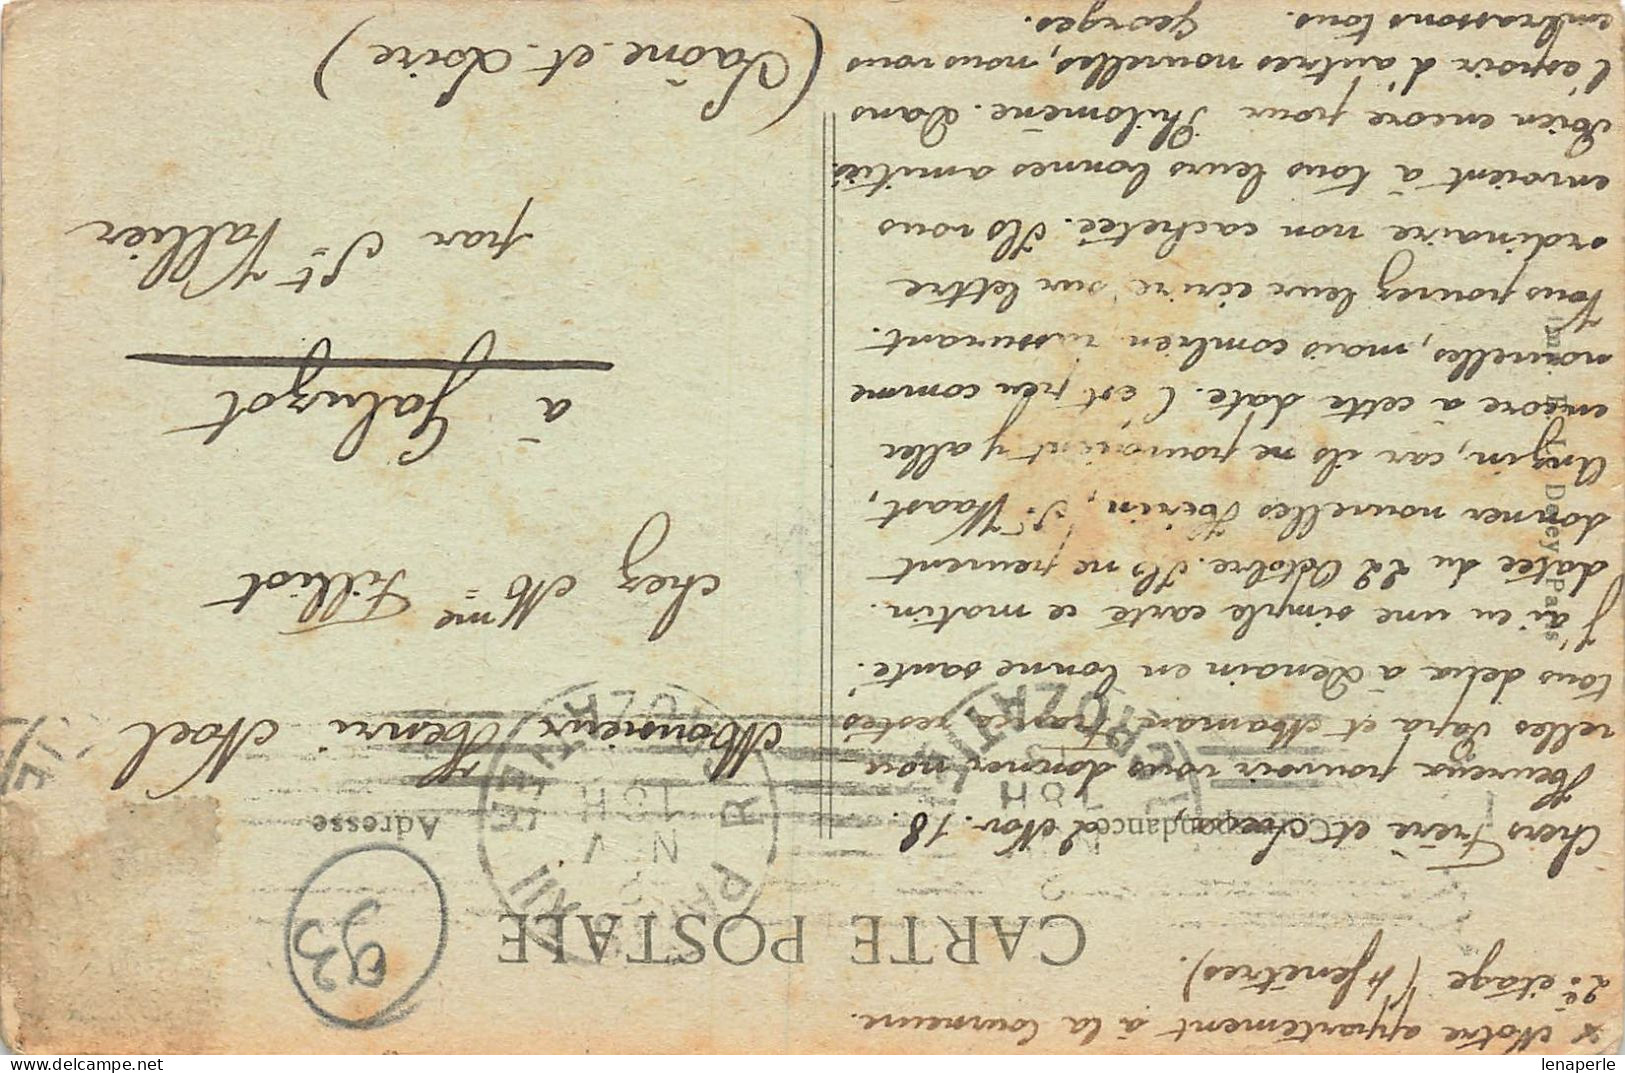 x Notre appartement à la tourneuse.
2e étage (4 fenêtres).
CARTE POSTALE
93
Correspondance
Adresse
Chers Frère et 2 Nov. 18.
Heureux pouvoir vous donner nou-
velles Papa et Maman restés
tous deux à Denain en bonne santé.
J'ai eu une simple carte ce matin.
datée du 22 Octobre. Ils ne peuvent
donner nouvelles Hérin, St Waast,
Anzin, car ils ne pouvaient y aller
encore à cette date. C'est peu comme
nouvelles, mais combien rassurant.
Vous pourrez leur écrire sur lettre
ordinaire non cachetée. Ils vous
envoient à tous leurs bonnes amitiés.
Rien encore pour Philomène. Dans
l'espoir d'autres nouvelles, nous vous
embrassons tous. Georges.
Monsieur Henri Noel
chez Mme Filliot
à Galuzot
par St Vallier
(Saône et Loire)
PARIS XVII
R. PTOZA
18 H
N V
lenaperle